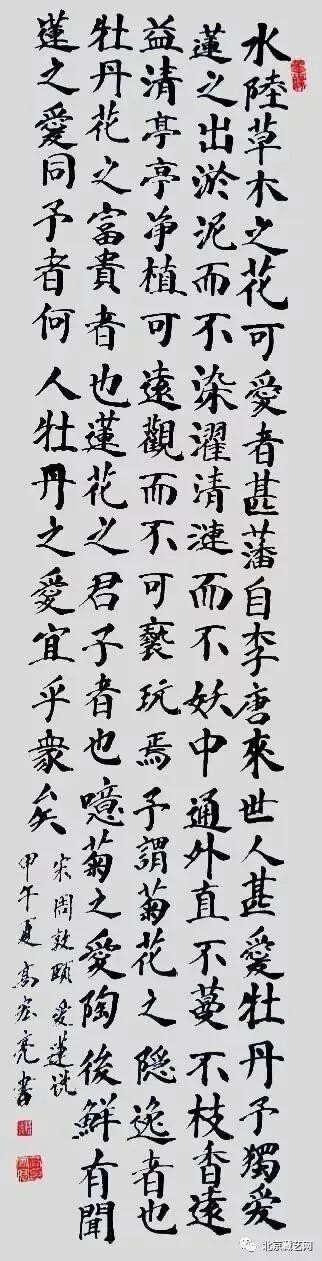 水陸草木之花可愛者甚藩自李唐來世人甚愛牡丹予獨愛
蓮之出淤泥而不染濯清漣而不妖中通外直不蔓不枝香遠
益清亭亭净植可遠觀而不可褻玩焉予謂菊花之隱逸者也
牡丹花之富貴者也蓮花之君子者也噫菊之愛陶後鮮有聞
蓮之愛同予者何人牡丹之愛宜乎衆矣
宋周敦頤愛蓮説
甲午夏高宏亮書
北京藏艺网